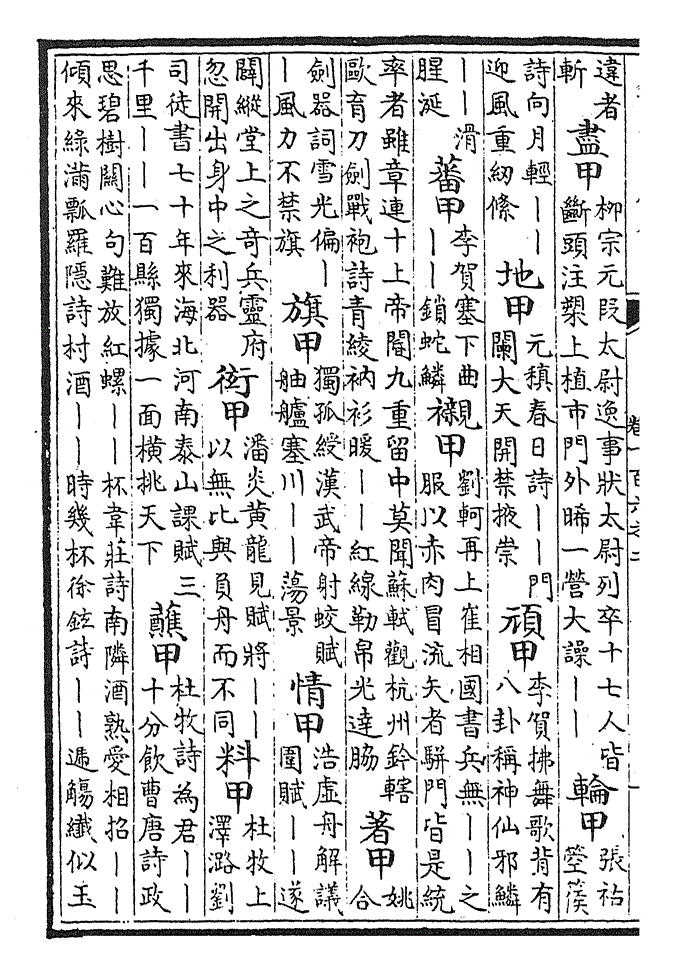 違者斬盡甲柳宗元段太尉逸事狀太尉列卒十七人皆斷頭注槊上植市門外晞一營大譟——輪甲張祜箜篌
詩向月輕——迎風重紉絛地甲元稹春日詩——門闌大天開禁掖崇頑甲李賀拂舞歌背有八卦稱神仙邪鱗
——滑腥涎蕃甲李賀塞下曲——鎖蛇鱗襯甲劉軻再上崔相國書兵無——之服以赤肉冒流矢者駢門皆是統
率者雖章連十上帝閽九重留中莫聞蘇軾觀杭州鈐轄歐育刀劍戰袍詩青綾衲衫暖——紅線勒帛光遶脇著甲姚合
劍器詞雪光偏——風力不禁旗旗甲獨孤綬漢武帝射蛟賦舳艫塞川——蕩景情甲浩虛舟解議圍賦——遂
闢縱堂上之奇兵靈府忽開出身中之利器銜甲潘炎黃龍見賦將——以無比與負舟而不同料甲杜牧上澤潞劉
司徒書七十年來海北河南泰山課賦三千里——一百縣獨據一面橫挑天下蘸甲杜牧詩為君——十分飲曹唐詩政
思碧樹關心句難放紅螺——杯韋莊詩南隣酒熟愛相招——傾來綠滿瓢羅隱詩村酒——時幾杯徐鉉詩——遞觴纖似玉